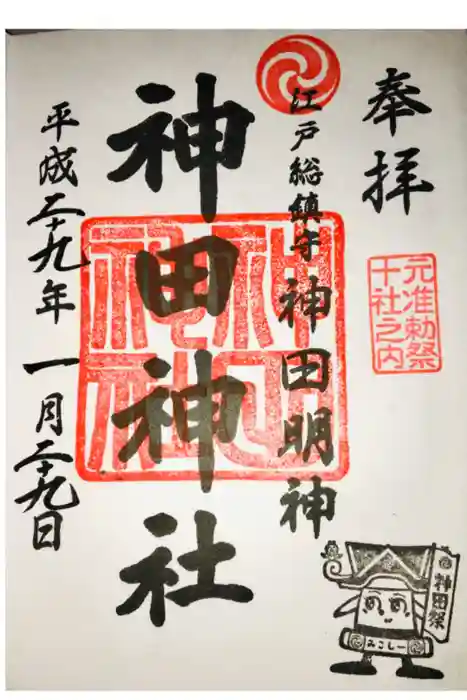 奉拝
元准勅祭
十社之内
江戸総鎮守 神田明神
神田神社
神田神社
平成二十九年 一月二十九日
神田祭
みこしー